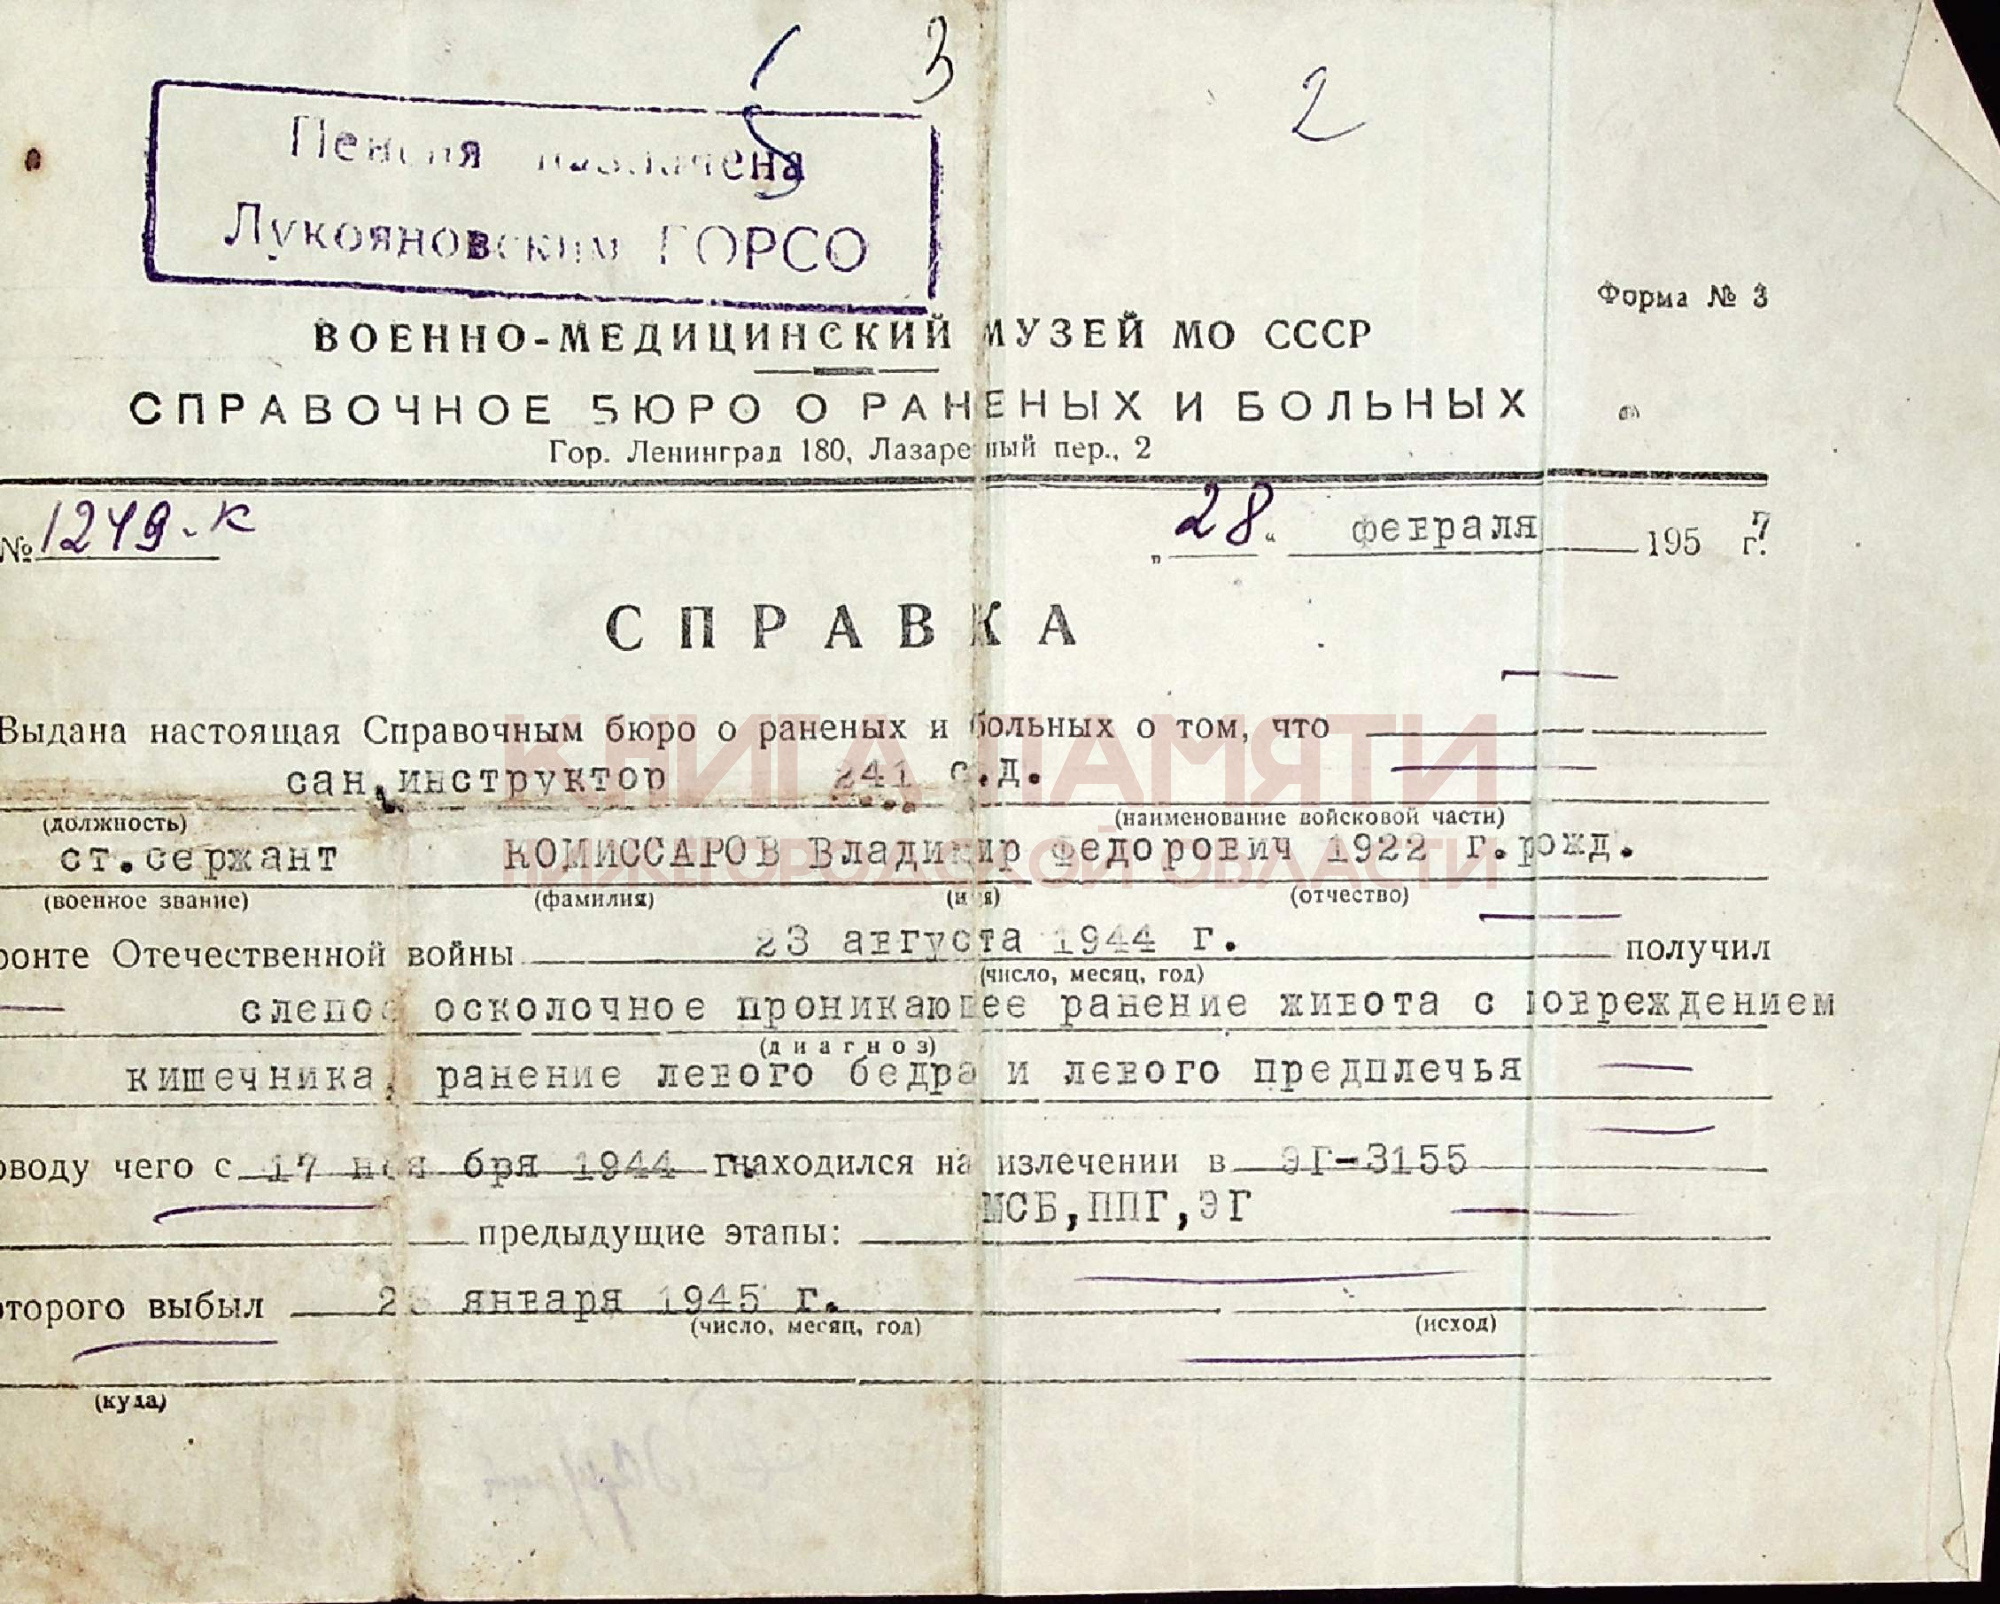 3
2
Пенсия назначена
Лукояновским ГОРСО
Форма № 3
ВОЕННО-МЕДИЦИНСКИЙ МУЗЕЙ МО СССР
СПРАВОЧНОЕ БЮРО О РАНЕНЫХ И БОЛЬНЫХ
Гор. Ленинград 180, Лазаретный пер., 2
№ 1249-к „28“ февраля 1957 г.
СПРАВКА
Выдана настоящая Справочным бюро о раненых и больных о том, что
сан.инструктор 241 с.д.
(должность) (наименование войсковой части)
ст.сержант КОМИССАРОВ Владимир Федорович 1922 г.рожд.
(военное звание) (фамилия) (имя) (отчество)
ронте Отечественной войны 23 августа 1944 г. получил
(число, месяц, год)
слепое осколочное проникающее ранение живота с повреждением
(диагноз)
кишечника, ранение левого бедра и левого предплечья
оводу чего с 17 ноя бря 1944 г. находился на излечении в ЭГ-3155
предыдущие этапы: МСБ,ППГ,ЭГ
оторого выбыл января 1945 г.
(число, месяц, год) (исход)
(куда)
КНИГА ПАМЯТИ
НИЖЕГОРОДСКОЙ ОБЛАСТИ